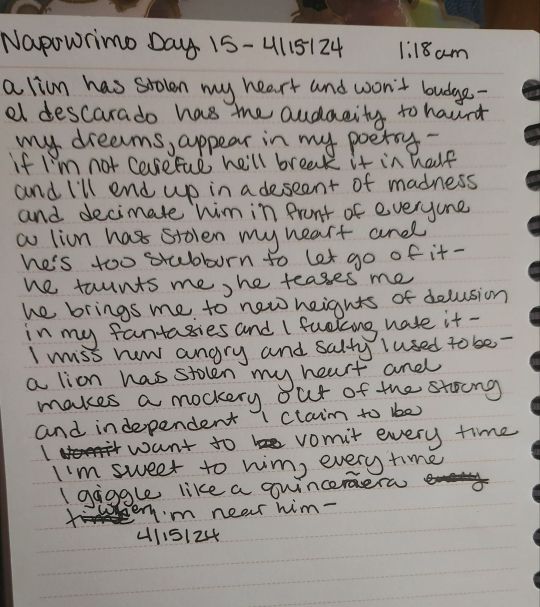 Napowrimo Day 15 - 4/15/24 1:18am
a lion has stolen my heart and won't budge-
el descarado has the audacity to haunt
my dreams, appear in my poetry-
if I'm not careful he'll break it in half
and I'll end up in a descent of madness
and decimate him in front of everyone
a lion has stolen my heart and
he's too stubborn to let go of it-
he taunts me, he teases me
he brings me to new heights of delusion
in my fantasies and I fucking hate it-
I miss how angry and salty I used to be-
a lion has stolen my heart and
makes a mockery out of the strong
and independent I claim to be
I want to vomit every time
I'm sweet to him, every time
I giggle like a quinceañera
when I'm near him-
4/15/24